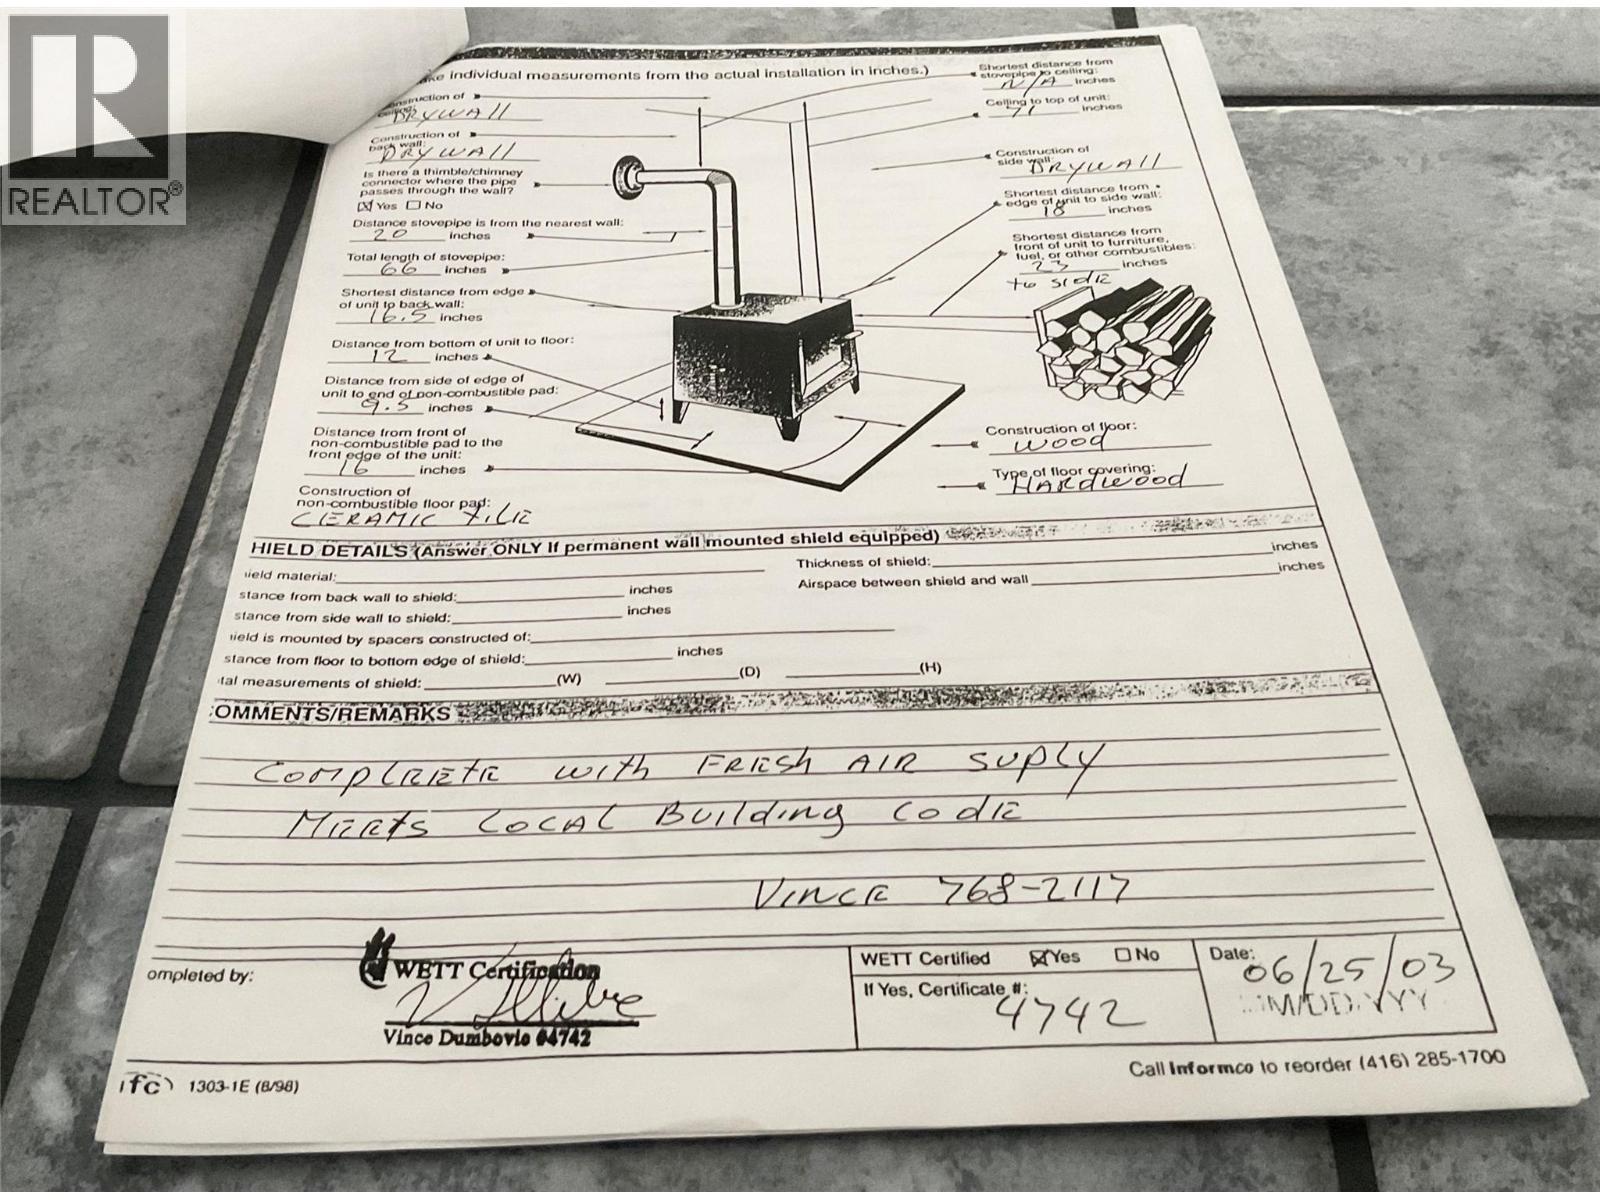 REALTOR®
ke individual measurements from the actual installation in inches.)
onstruction of
ceiling:
DRYWALL
Construction of
back wall:
DRYWALL
Is there a thimble/chimney
connector where the pipe
passes through the wall?
☒ Yes ☐ No
Distance stovepipe is from the nearest wall:
20 inches
Total length of stovepipe:
66 inches
Shortest distance from edge
of unit to back wall:
16.5 inches
Distance from bottom of unit to floor:
12 inches
Distance from side of edge of
unit to end of non-combustible pad:
9.5 inches
Distance from front of
non-combustible pad to the
front edge of the unit:
16 inches
Construction of
non-combustible floor pad:
CERAMIC TILE
Shortest distance from
stovepipe to ceiling:
N/A inches
Ceiling to top of unit:
71 inches
Construction of
side wall:
DRYWALL
Shortest distance from
edge of unit to side wall:
18 inches
Shortest distance from
front of unit to furniture,
fuel, or other combustibles:
23 inches
to SIDE
Construction of floor:
WOOD
Type of floor covering:
HARDWOOD
HIELD DETAILS (Answer ONLY If permanent wall mounted shield equipped)
ield material:
stance from back wall to shield: inches
stance from side wall to shield: inches
ield is mounted by spacers constructed of:
stance from floor to bottom edge of shield: inches
tal measurements of shield: (W) (D) (H)
Thickness of shield: inches
Airspace between shield and wall inches
OMMENTS/REMARKS
COMPLEETE WITH FRESH AIR SUPLY
MEETS LOCAL BUILDING CODE
VINCE 768-2117
ompleted by:
WETT Certification
Vince Dumbovic #4742
WETT Certified ☒ Yes ☐ No
If Yes, Certificate #:
4742
Date:
06/25/03
MM/DD/YYY
ifc 1303-1E (8/98)
Call Informco to reorder (416) 285-1700